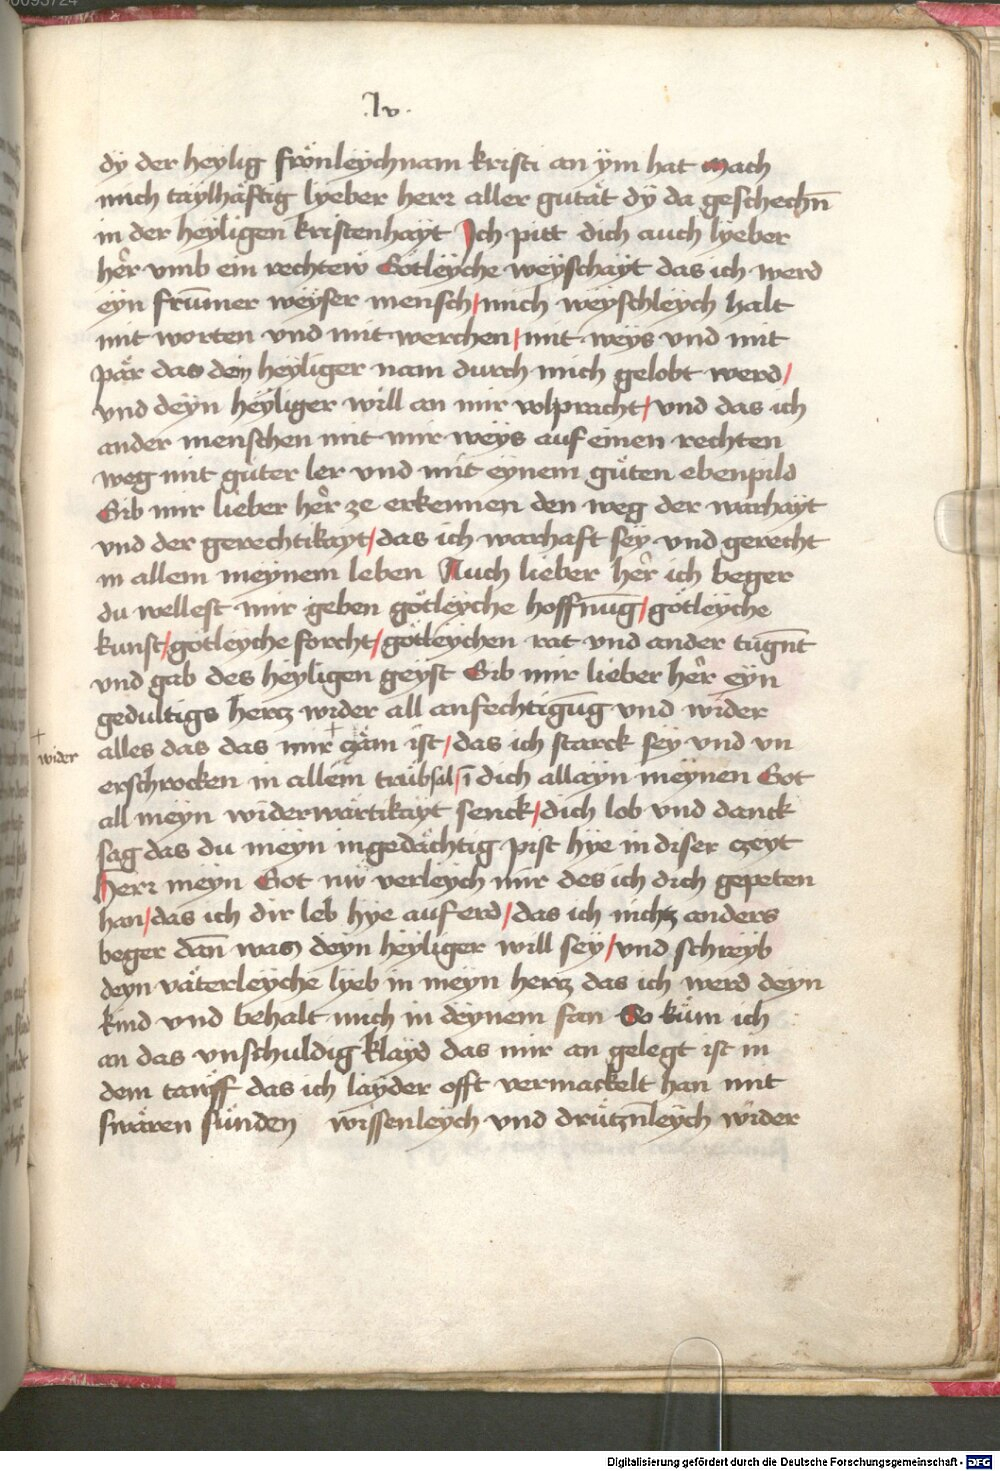 .lv.
dÿ der heylig frönleychnam kristi an ÿm hat mach
mich taylhäftig lyeber herr aller gutät dÿ da geschechn̄
in der heyligen kristenhayt Ich pitt dich auch lyeber
her vmb ein rechtew Götleyche weyschayt das ich werd
eyn frūmer weyser mensch/mich weyschleych halt
mit worten vnd mit werchen/mit weys vnd mit
pär das dein heyliger nam durch mich gelobt werd/
vnd deyn heyliger will an mir volpracht/vnd das ich
ander menschen mit mir weys auf einen rechten
weg mit guter ler vnd mit eynem guten ebenpild
Gib mir lieber her ze erkennen den weg der warhayt
vnd der gerechtikayt/das ich warhaft sey vnd gerecht
in allem meynem leben Auch lieber her ich beger
du wellest mir geben götleyche hoffnūg/götleyche
kunst/götleyche forcht/götleychen rat vnd ander tugn̄t
vnd gab des heyligen geyst Gib mir lieber her eyn
gedultigs hercz wider all anfechtigūg vnd wider
+ wider
alles das das mir + czäm ist/das ich starck sey vnd vn
erschrocken in allem trübsal/ī dich allayn meynen Got
all meyn widerwärtikayt senck/dich lob vnd danck
sag das du meyn ingedächtig pist hye in diser czeyt
Herr meyn Got nw verleych mir des ich dich gepeten
han/das ich dir leb hye auf erd/das ich nichcz anders
beger dan̄ was deyn heyliger will sey/vnd schreyb
deyn väterleyche lyeb in meyn hercz das ich werd deyn
kind vnd behalt mich in deynem san So küm ich
an das vnschuldig klayd das mir an gelegt ist in
dem tawff das ich layder offt vermackelt han mit
swären sünden wissenleych vnd drüczn̄leych wider
Digitalisierung gefördert durch die Deutsche Forschungsgemeinschaft - DFG